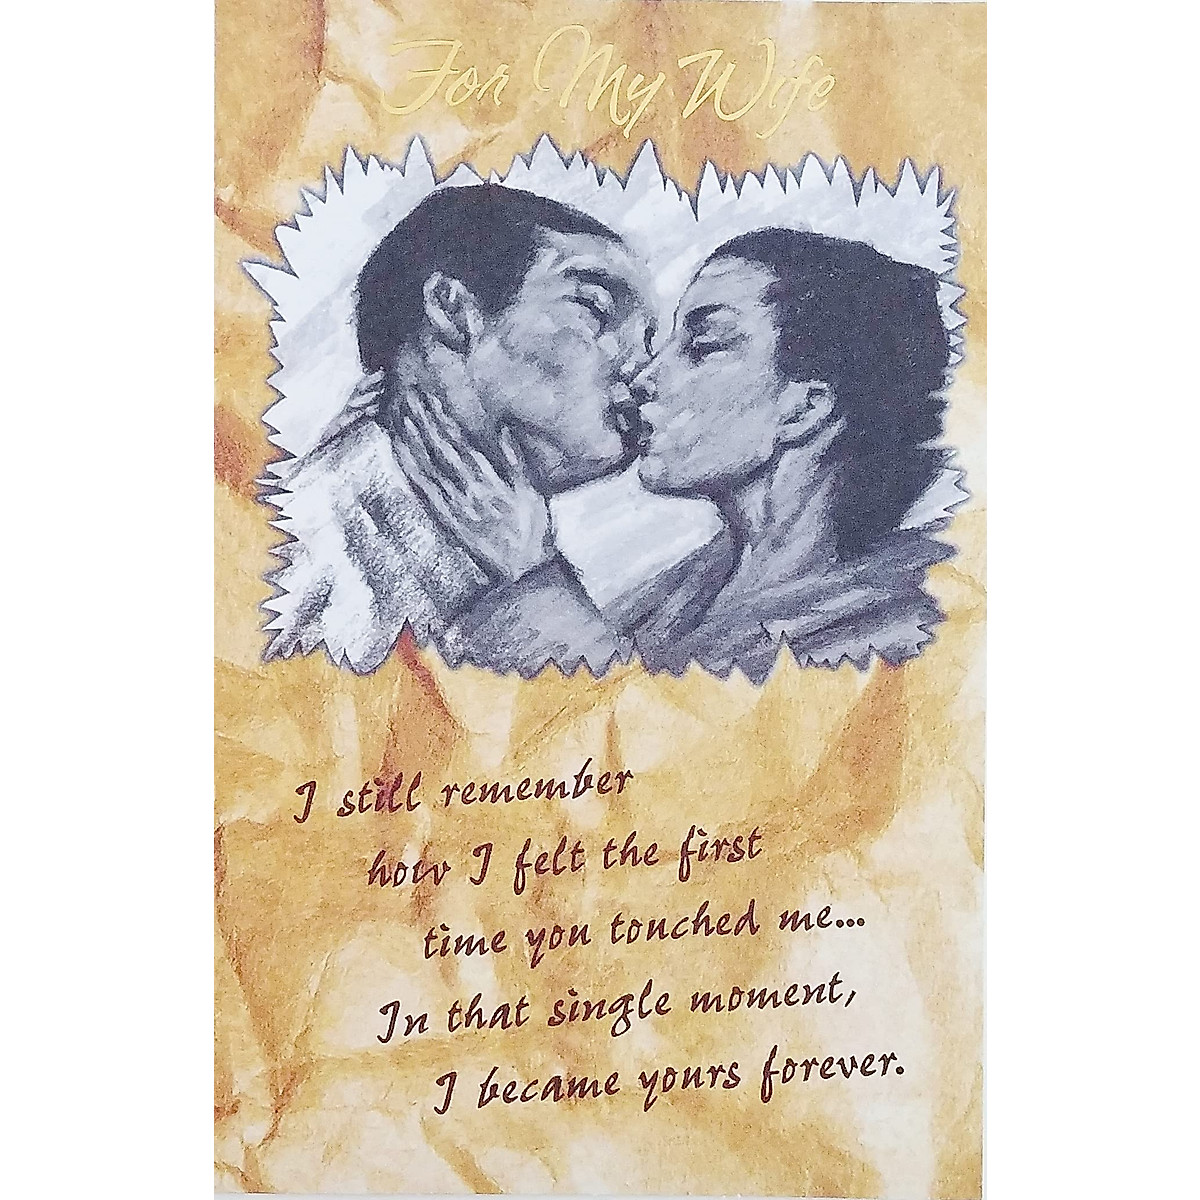 For My Wife
I still remember
how I felt the first
time you touched me...
In that single moment,
I became yours forever.